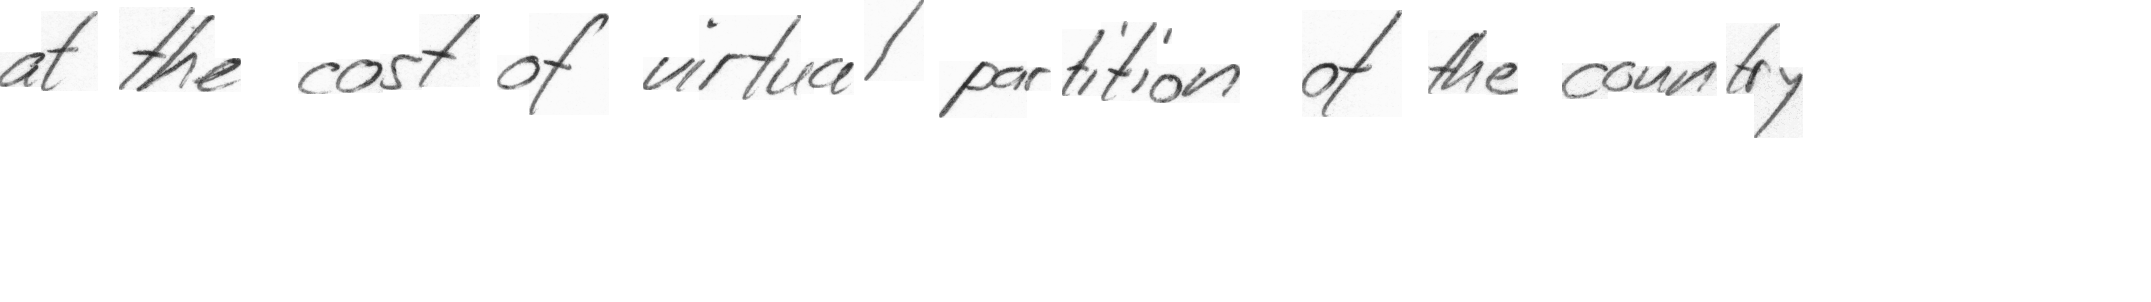 at the cost of virtual partition of the country